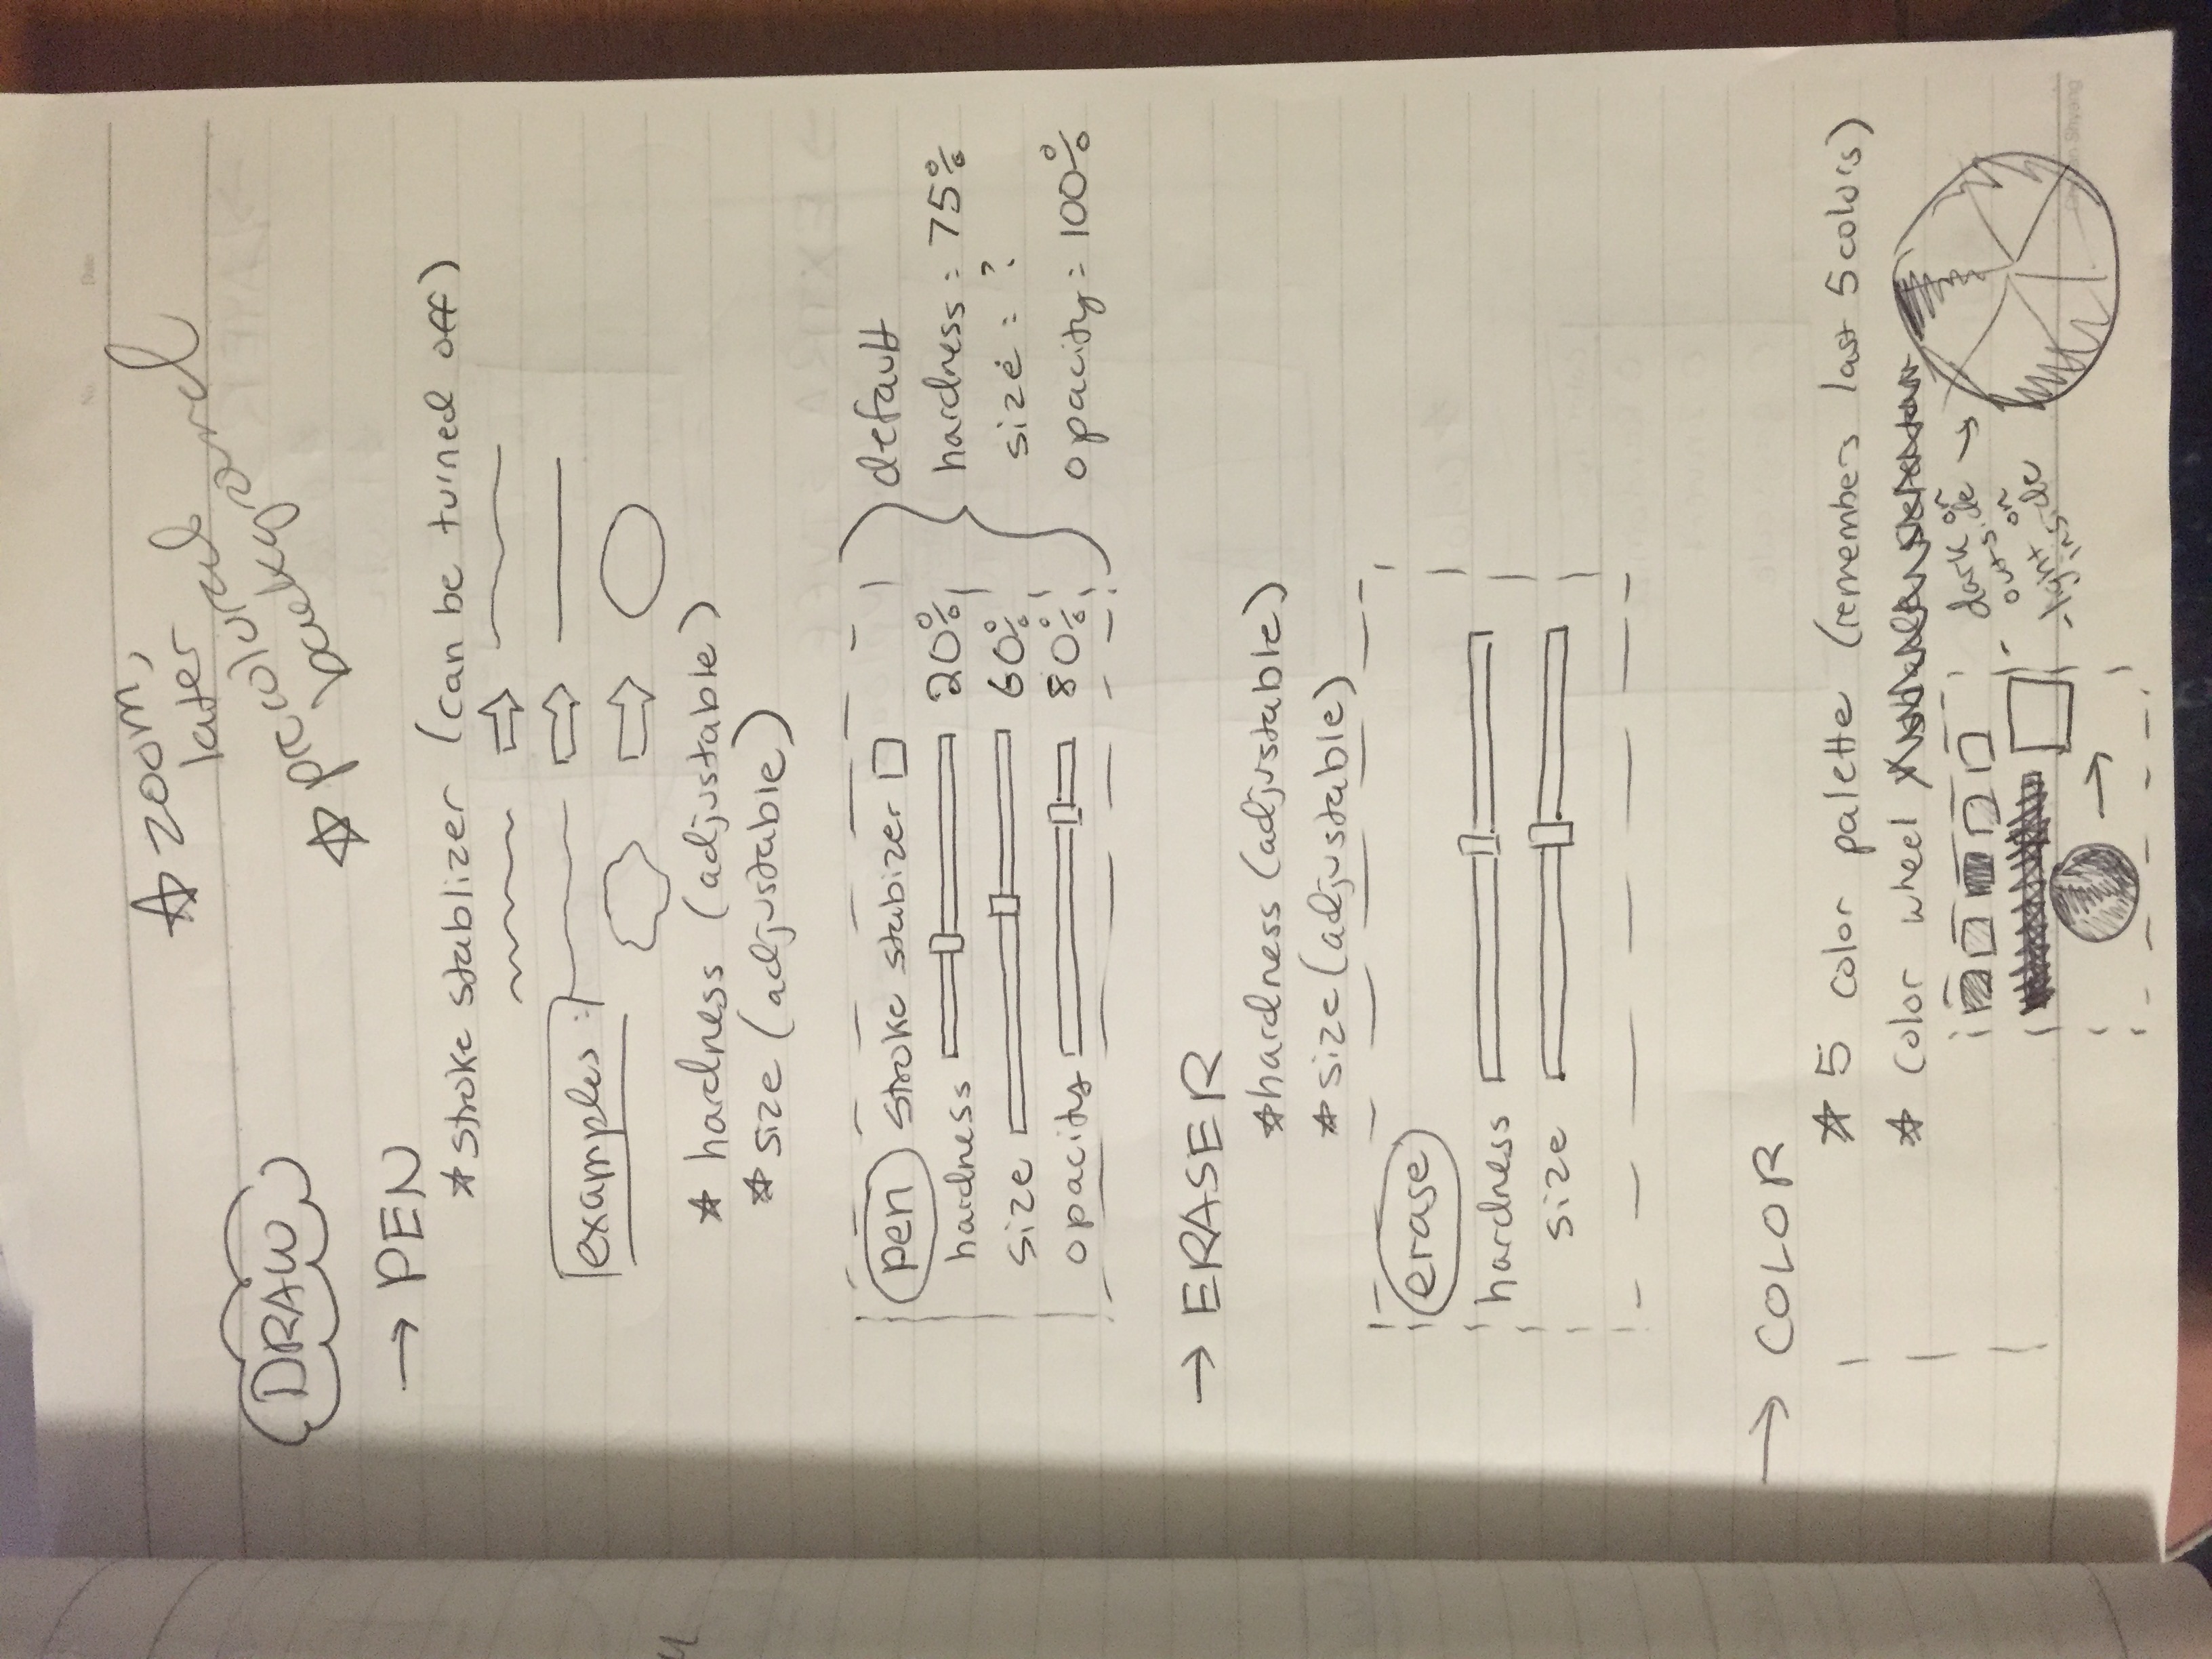 No.
Date
☆ zoom,
later
☆ precolored
background
DRAW
→ PEN
☆ stroke stablizer (can be turned off)
examples:
☆ hardness (adjustable)
☆ size (adjustable)
pen stroke stabizer
hardness 20%
size 60%
opacity 80%
default
hardness: 75%
size: ?
opacity: 100%
→ ERASER
☆ hardness (adjustable)
☆ size (adjustable)
erase
hardness
size
→ COLOR
☆ 5 color palette (remembers last 5 colors)
☆ color wheel
- dark on
outside
- light on
inside